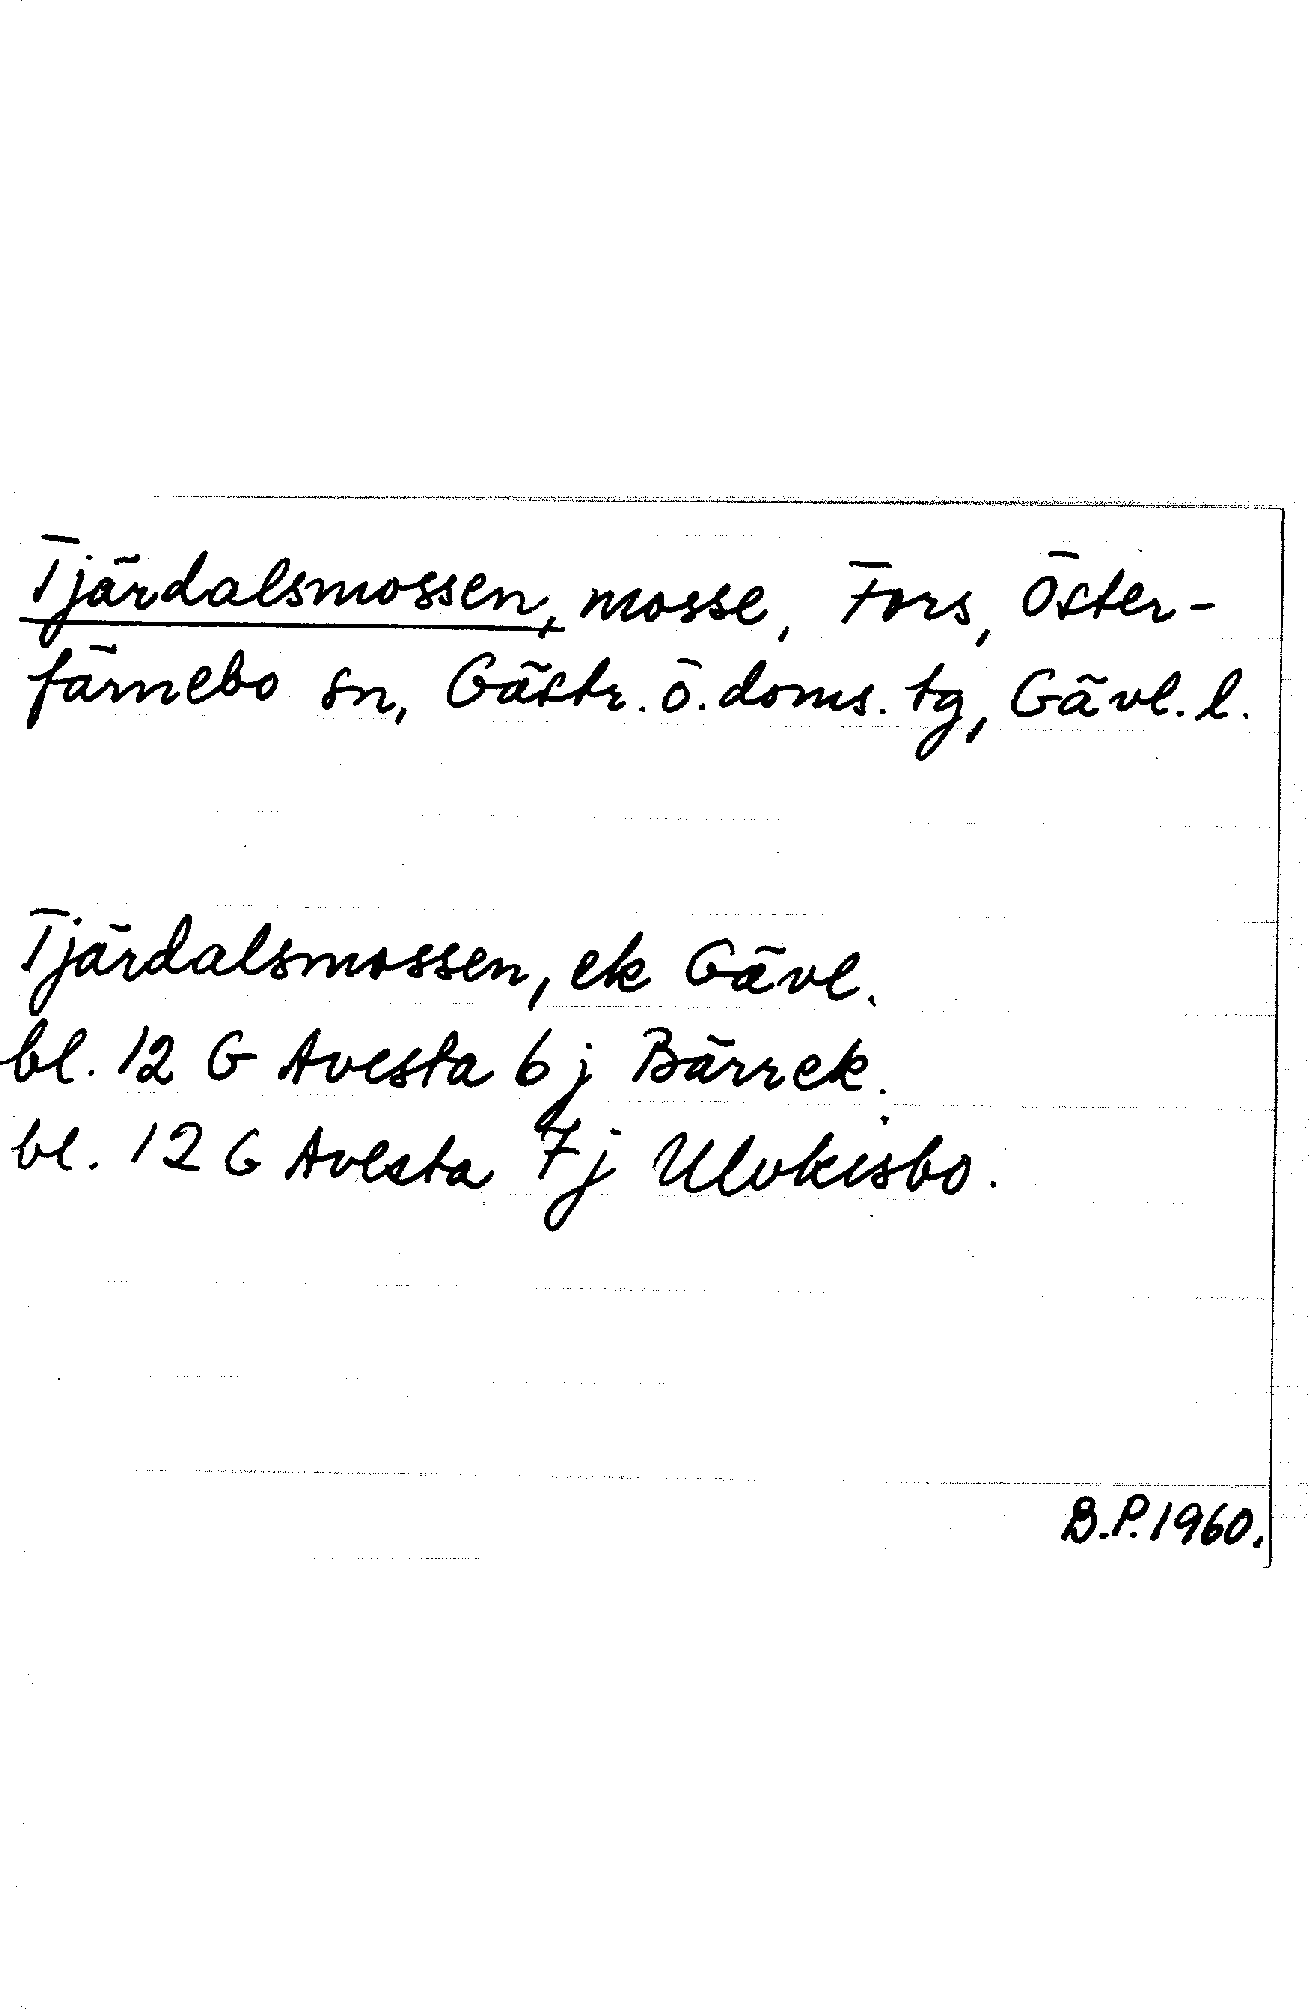 Tjärdalsmossen, mosse, Fors, Öster-
färnebo sn, Gästr. ö. doms. tg, Gävl. l.
Tjärdalsmossen, ek Gävl.
bl. 12 G Avesta 6 j Bärrek.
bl. 12 G Avesta 7 j Ulvkisbo.
B.P. 1960.